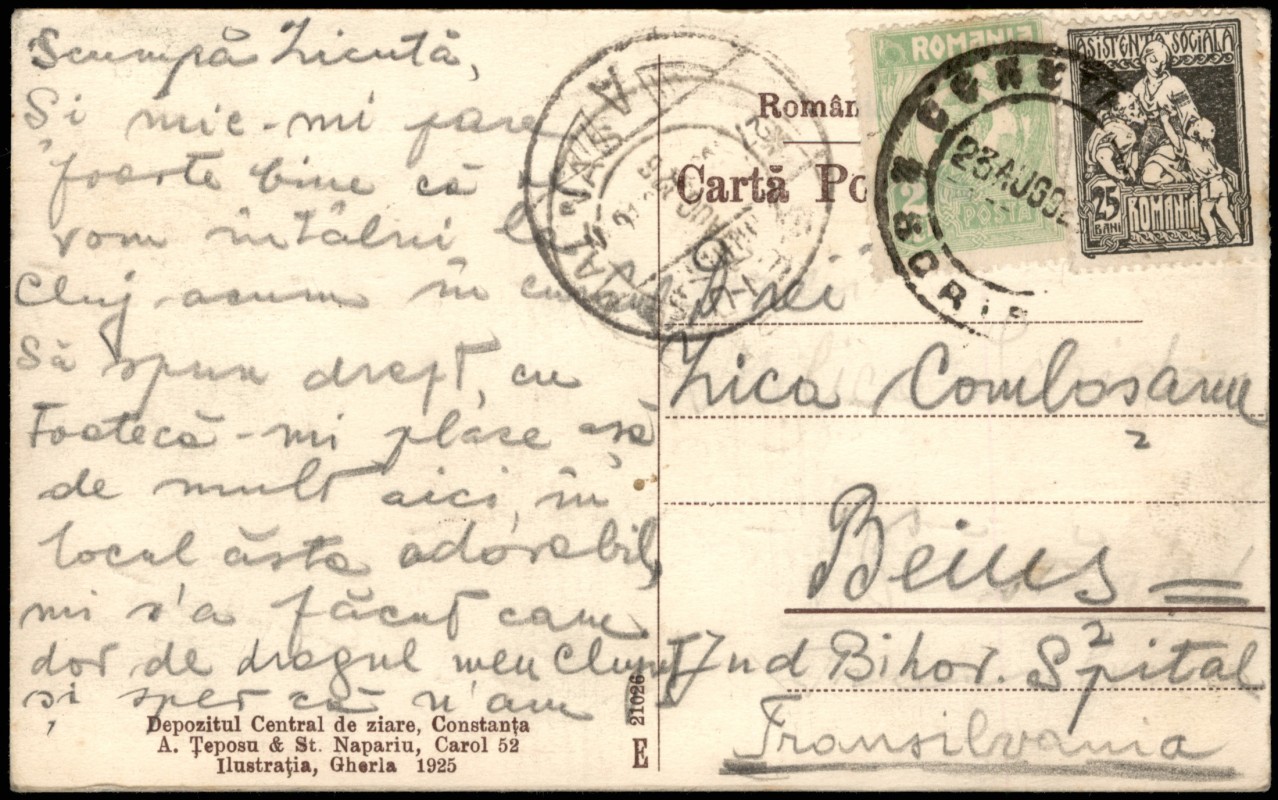 Scumpă Licută,
Și mie-mi pare
foarte bine că
vom întâlni
Cluj acum în
Să spun drept, cu
Toatecă-mi place așa
de mult aici, în
locul ăsta adorabil,
mi s'a făcut cam
dor de dragul meu Cluj
și sper că n'am
Depozitul Central de ziare, Constanța
A. Țeposu & St. Napariu, Carol 52
Ilustrația, Gherla 1925
E 21026
Cartă
ROMANIA
2
POSTA
ASISTENȚA SOCIALA
25
BANI
ROMANIA
23 AUG 92
Lica
Beiuș
Jud Bihor. Spital
Transilvania